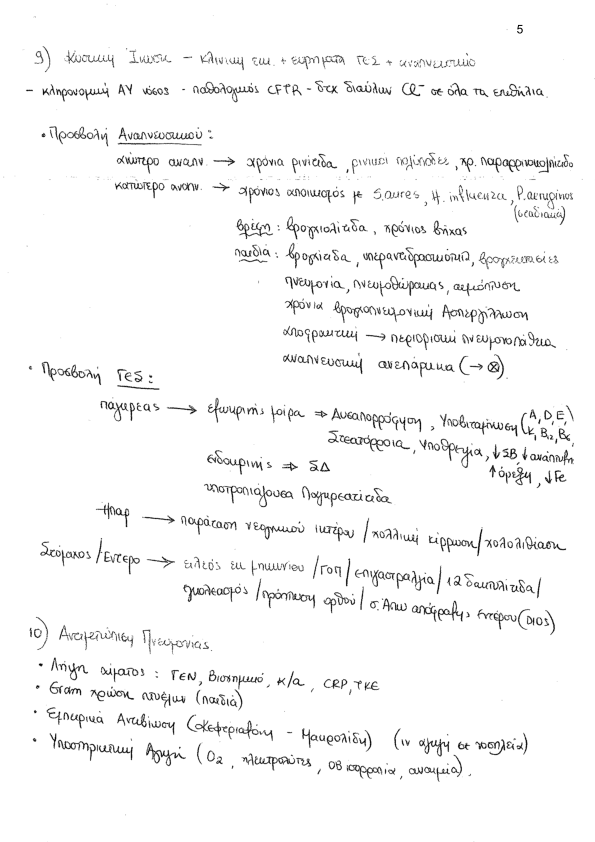 5
9) Κυστική Ίνωση - κλινική εικ. + ευρήματα ΓΕΣ + αναπνευστικό
- κληρονομική ΑΥ νόσος - παθολογικός CFTR - δεκ διαύλων Cl⁻ σε όλα τα επιθήλια.
• Προσβολή Αναπνευστικού:
ανώτερο αναπν. → χρόνια ρινίτιδα, ρινικοί πολύποδες, χρ. παραρρινοκολπίτιδα
κατώτερο αναπν. → χρόνιος αποικισμός με S.aures, H. influenza, P. aeruginos
(σταδιακά)
βρέφη: βρογχιολίτιδα, χρόνιος βήχας
παιδιά: βρογχίτιδα, υπεραντιδραστικότητα, βρογχεκτασίες
πνευμονία, πνευμοθώρακας, αιμόπτυση
χρόνια βρογχοπνευμονική Ασπεργίλλωση
αποφρακτική → περιοριστική πνευμονοπάθεια
αναπνευστική ανεπάρκεια (→ ⊗)
• Προσβολή ΓΕΣ:
πάγκρεας → εξωκρινής μοίρα ⇒ Δυσαπορρόφηση, Υποβιταμίνωση (A, D, E, K, B12, B6)
Στεατόρροια, Υποθρεψία, ↓ΣΒ, ↓ανάπτυξη
↑όρεξη, ↓Fe
ενδοκρινής ⇒ ΣΔ
υποτροπιάζουσα Παγκρεατίτιδα
Ήπαρ → παράταση νεογνικού ικτέρου / χολική κίρρωση / χολολιθίαση
Στόμαχος / Έντερο → ειλεός εκ μηκωνίου / ΓΟΠ / επιγαστραλγία / 12δακτυλίτιδα /
εγκολεασμός / πρόπτωση ορθού / σ. Άπω απόφραξης εντέρου (DIOS)
10) Αντιμετώπιση Πνευμονίας.
• Λήψη αίματος: ΓΕΝ, Βιοχημικό, κ/α, CRP, ΤΚΕ
• Gram χρώση πτυέλων (παιδιά)
• Εμπειρικά Αντιβίωση (Κεφτριαξόνη - Μακρολίδη) (iv αγωγή σε νοσηλεία)
• Υποστηρικτική Αγωγή (O2, ηλεκτρολύτες, ΟΒ ισορροπία, αναιμία).